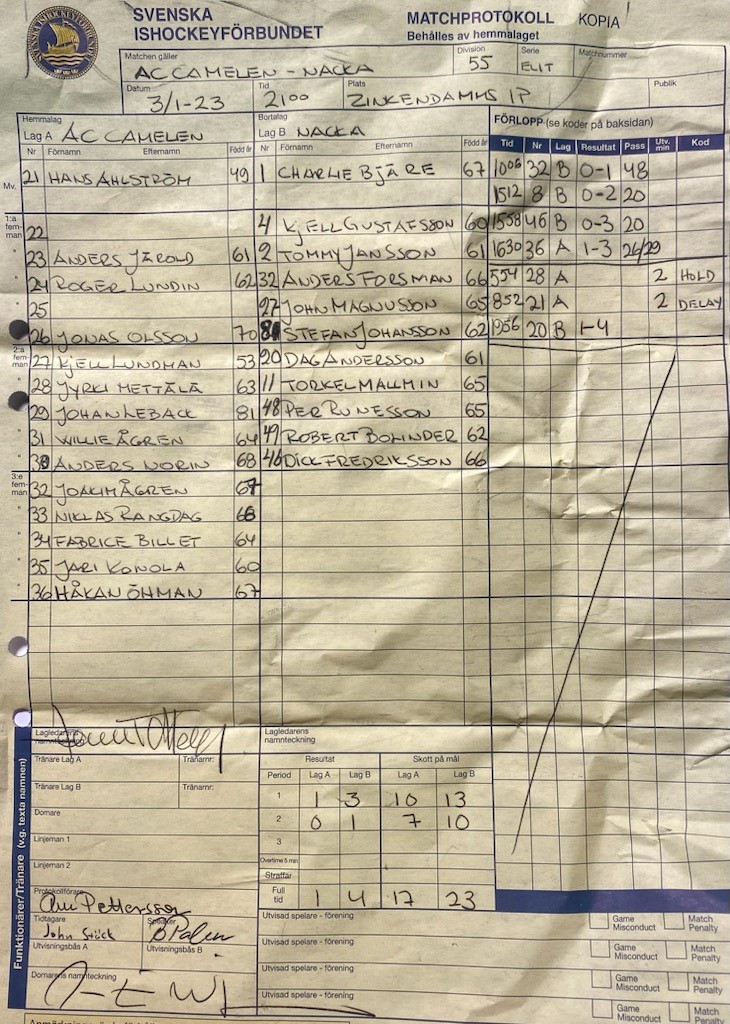 SVENSKA
ISHOCKEYFÖRBUNDET
MATCHPROTOKOLL KOPIA
Behålles av hemmalaget
SVENSKA ISHOCKEYFÖRBUNDET
Matchen gäller Division Serie Matchnummer
AC CAMELEN - NACKA 55 ELIT
Datum Tid Plats Publik
3/1-23 2100 ZINKENDAMMS IP
Hemmalag Bortalag
Lag A AC CAMELEN Lag B NACKA
FÖRLOPP (se koder på baksidan)
Nr Förnamn Efternamn Född år Nr Förnamn Efternamn Född år Tid Nr Lag Resultat Pass Utv. min Kod
Mv. 21 HANS AHLSTRÖM 49 1 CHARLIE BJÄRE 67 1006 32 B 0-1 48
1512 8 B 0-2 20
1:a fem- man 22 4 KJELL GUSTAFSSON 60 1558 46 B 0-3 20
" 23 ANDERS JÄROLD 61 2 TOMMY JANSSON 61 1630 36 A 1-3 26/29
" 24 ROGER LUNDIN 62 32 ANDERS FORSMAN 66 554 28 A 2 HOLD
" 25 27 JOHN MAGNUSSON 65 852 21 A 2 DELAY
26 JONAS OLSSON 70 8 STEFAN JOHANSSON 62 1956 20 B 1-4
2:a fem- man 27 KJELL LUNDMAN 53 20 DAG ANDERSSON 61
" 28 JYRKI METTÄLÄ 63 11 TORKEL MALLMIN 65
29 JOHAN LEBACK 81 48 PER RUNESSON 55
" 31 WILLIE ÅGREN 64 49 ROBERT BOLINDER 62
" 30 ANDERS NORIN 68 46 DICK FREDRIKSSON 66
3:e fem- man 32 JOAKIM ÅGREN 67
" 33 NIKLAS RANGDAG 66
" 34 FABRICE BILLET 64
" 35 JARI KONOLA 60
" 36 HÅKAN ÖHMAN 67
Lagledarens namnteckning Lagledarens namnteckning
Funktionärer/Tränare (v.g. texta namnen)
Tränare Lag A Tränarnr:
Tränare Lag B Tränarnr:
Domare
Linjeman 1
Linjeman 2
Protokollförare
Ann Pettersson
Tidtagare Speaker
John Stück
Utvisningsbås A Utvisningsbås B
Domarens namnteckning
Resultat Skott på mål
Period Lag A Lag B Lag A Lag B
1 1 3 10 13
2 0 1 7 10
3
Overtime 5 min
Straffar
Full tid 1 4 17 23
Utvisad spelare - förening Game Misconduct Match Penalty
Utvisad spelare - förening Game Misconduct Match Penalty
Utvisad spelare - förening Game Misconduct Match Penalty
Utvisad spelare - förening Game Misconduct Match Penalty